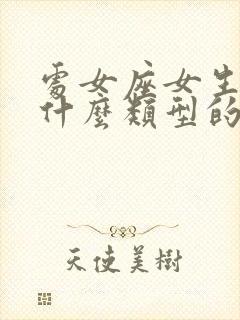 處女座女生
什麼類型的
天使美樹